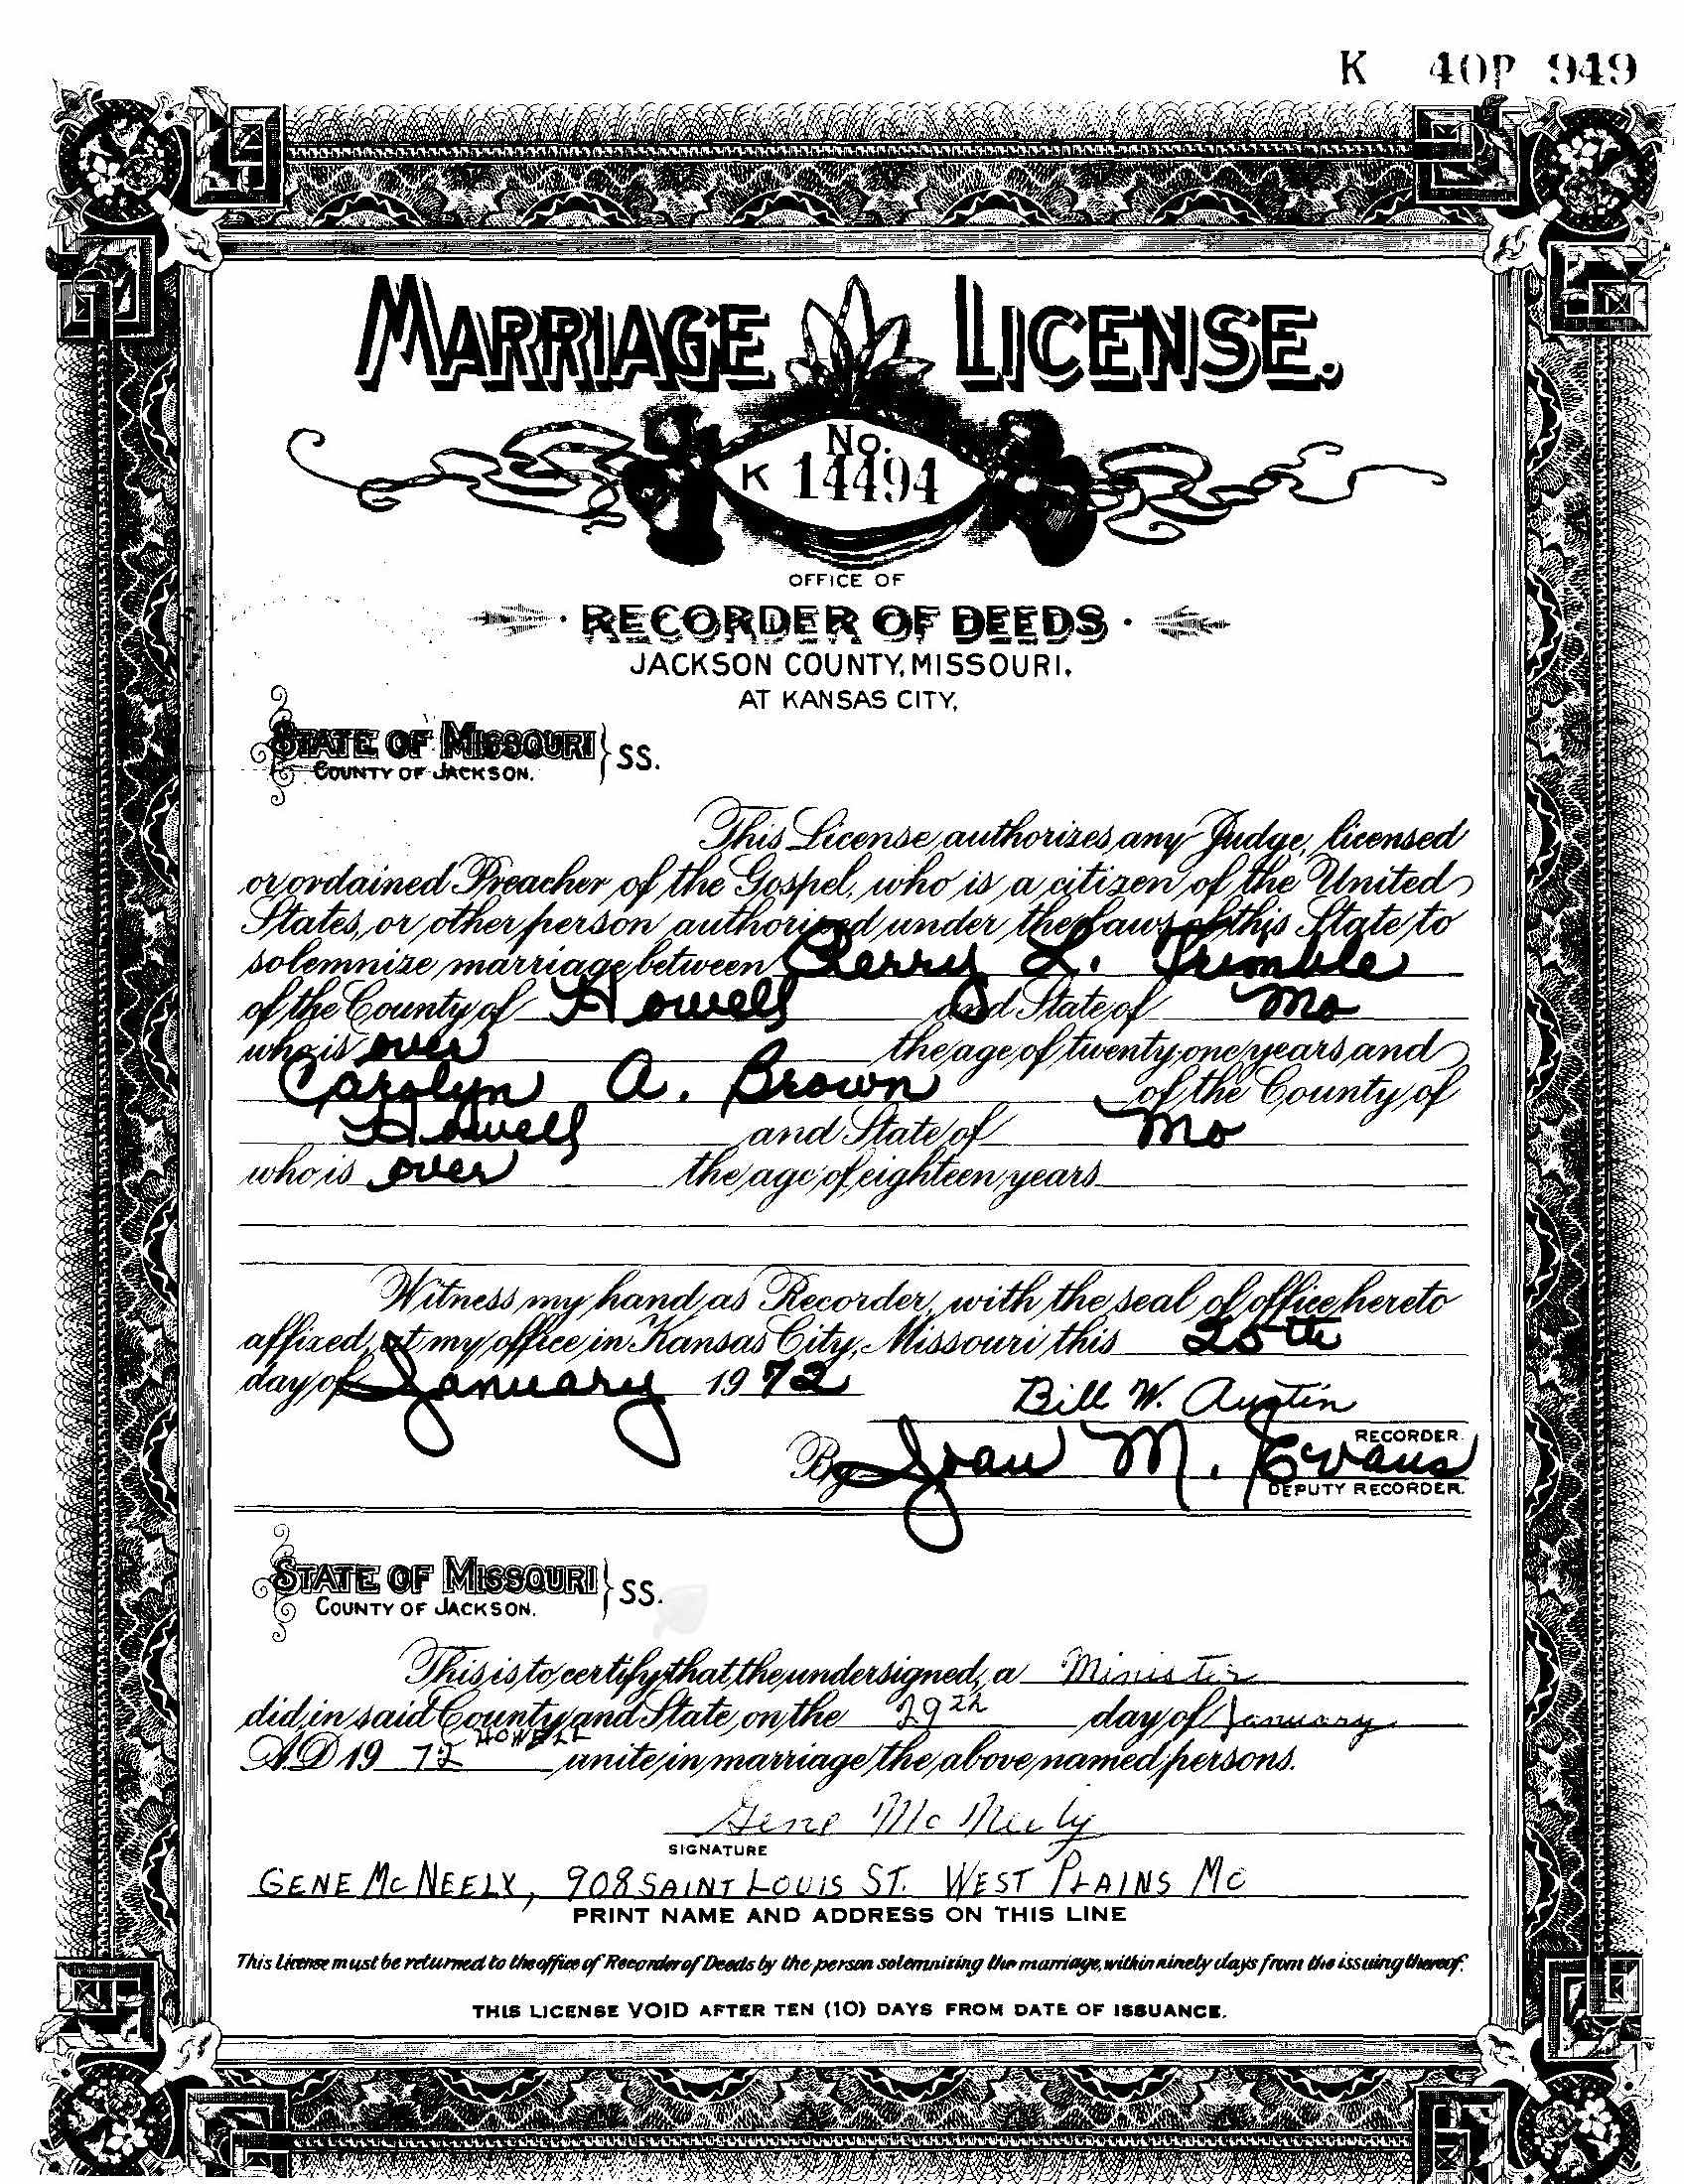 K 40P 949
MARRIAGE LICENSE.
No.
K 14494
OFFICE OF
RECORDER OF DEEDS
JACKSON COUNTY, MISSOURI.
AT KANSAS CITY,
STATE OF MISSOURI } SS.
COUNTY OF JACKSON.
This License authorizes any Judge, licensed
or ordained Preacher of the Gospel, who is a citizen of the United
States, or other person authorized under the Laws of this State to
solemnize marriage between L. Trimble
of the County of Howell and State of Mo
who is over the age of twenty-one years and
Carolyn A. Brown of the County of
Howell and State of Mo
who is over the age of eighteen years
Witness my hand as Recorder, with the seal of office hereto
affixed, at my office in Kansas City, Missouri this 25th
day of January 1972
Bill W. Austin
RECORDER.
By Joan M. Evans
DEPUTY RECORDER.
STATE OF MISSOURI } SS.
COUNTY OF JACKSON.
This is to certify that the undersigned, a Minister
did in said County and State, on the 29th day of January
HOWELL
A.D. 19 72 unite in marriage the above named persons.
Gene McNeely
SIGNATURE
GENE McNEELY, 908 SAINT LOUIS ST. WEST PLAINS MO
PRINT NAME AND ADDRESS ON THIS LINE
This License must be returned to the office of Recorder of Deeds by the person solemnizing the marriage, within ninety days from the issuing thereof.
THIS LICENSE VOID AFTER TEN (10) DAYS FROM DATE OF ISSUANCE.